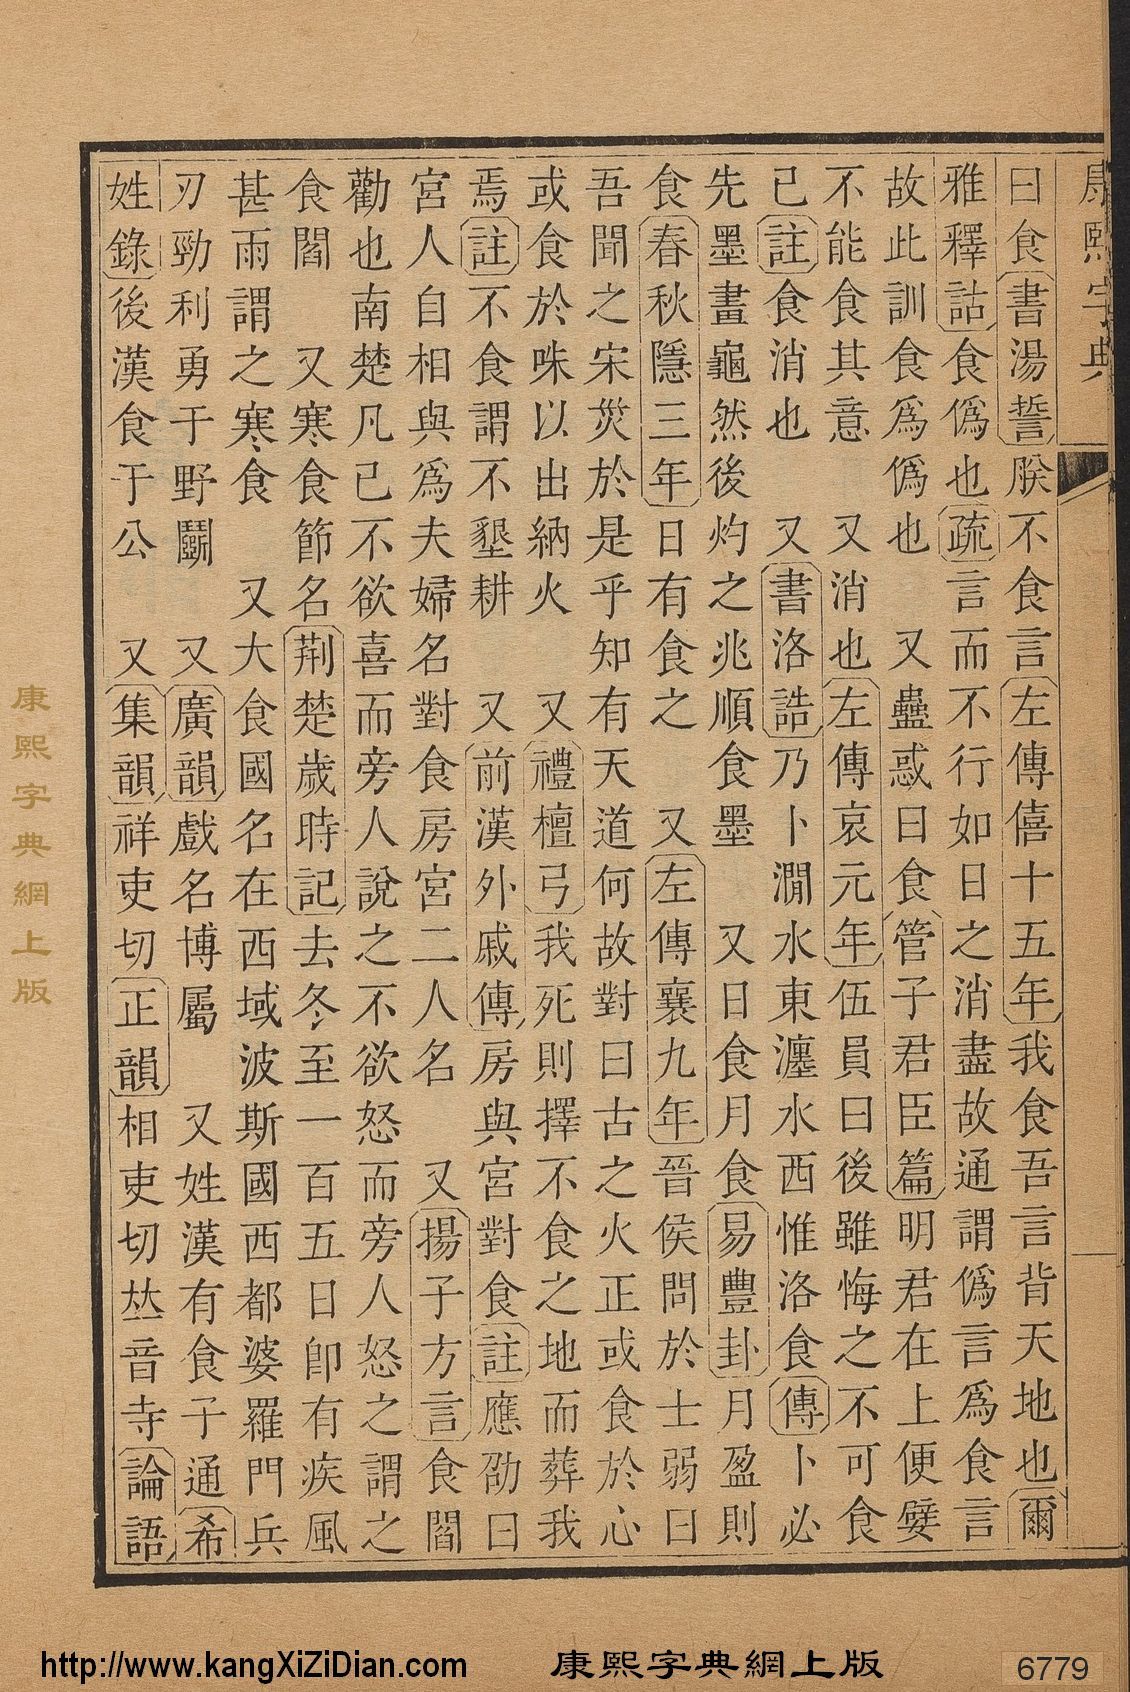 康熙字典
曰食書湯誓朕不食言左傳僖十五年我食吾言背天地也爾
雅釋詁食僞也疏言而不行如日之消盡故通謂僞言爲食言
故此訓食爲僞也 又蠱惑曰食管子君臣篇明君在上便嬖
不能食其意 又消也左傳哀元年伍員曰後雖悔之不可食
已註食消也 又書洛誥乃卜澗水東瀍水西惟洛食傳卜必
先墨畫龜然後灼之兆順食墨 又日食月食易豐卦月盈則
食春秋隱三年日有食之 又左傳襄九年晉侯問於士弱曰
吾聞之宋災於是乎知有天道何故對曰古之火正或食於心
或食於咮以出納火 又禮檀弓我死則擇不食之地而葬我
焉註不食謂不墾耕 又前漢外戚傳房與宮對食註應劭曰
宮人自相與爲夫婦名對食房宮二人名 又揚子方言食閻
勸也南楚凡己不欲喜而旁人說之不欲怒而旁人怒之謂之
食閻 又寒食節名荆楚歲時記去冬至一百五日卽有疾風
甚雨謂之寒食 又大食國名在西域波斯國西都婆羅門兵
刃勁利勇于野鬭 又廣韻戲名博屬 又姓漢有食子通希
姓錄後漢食于公 又集韻祥吏切正韻相吏切𠀤音寺論語
康熙字典網上版
http://www.kangXiZiDian.com 康熙字典網上版 6779